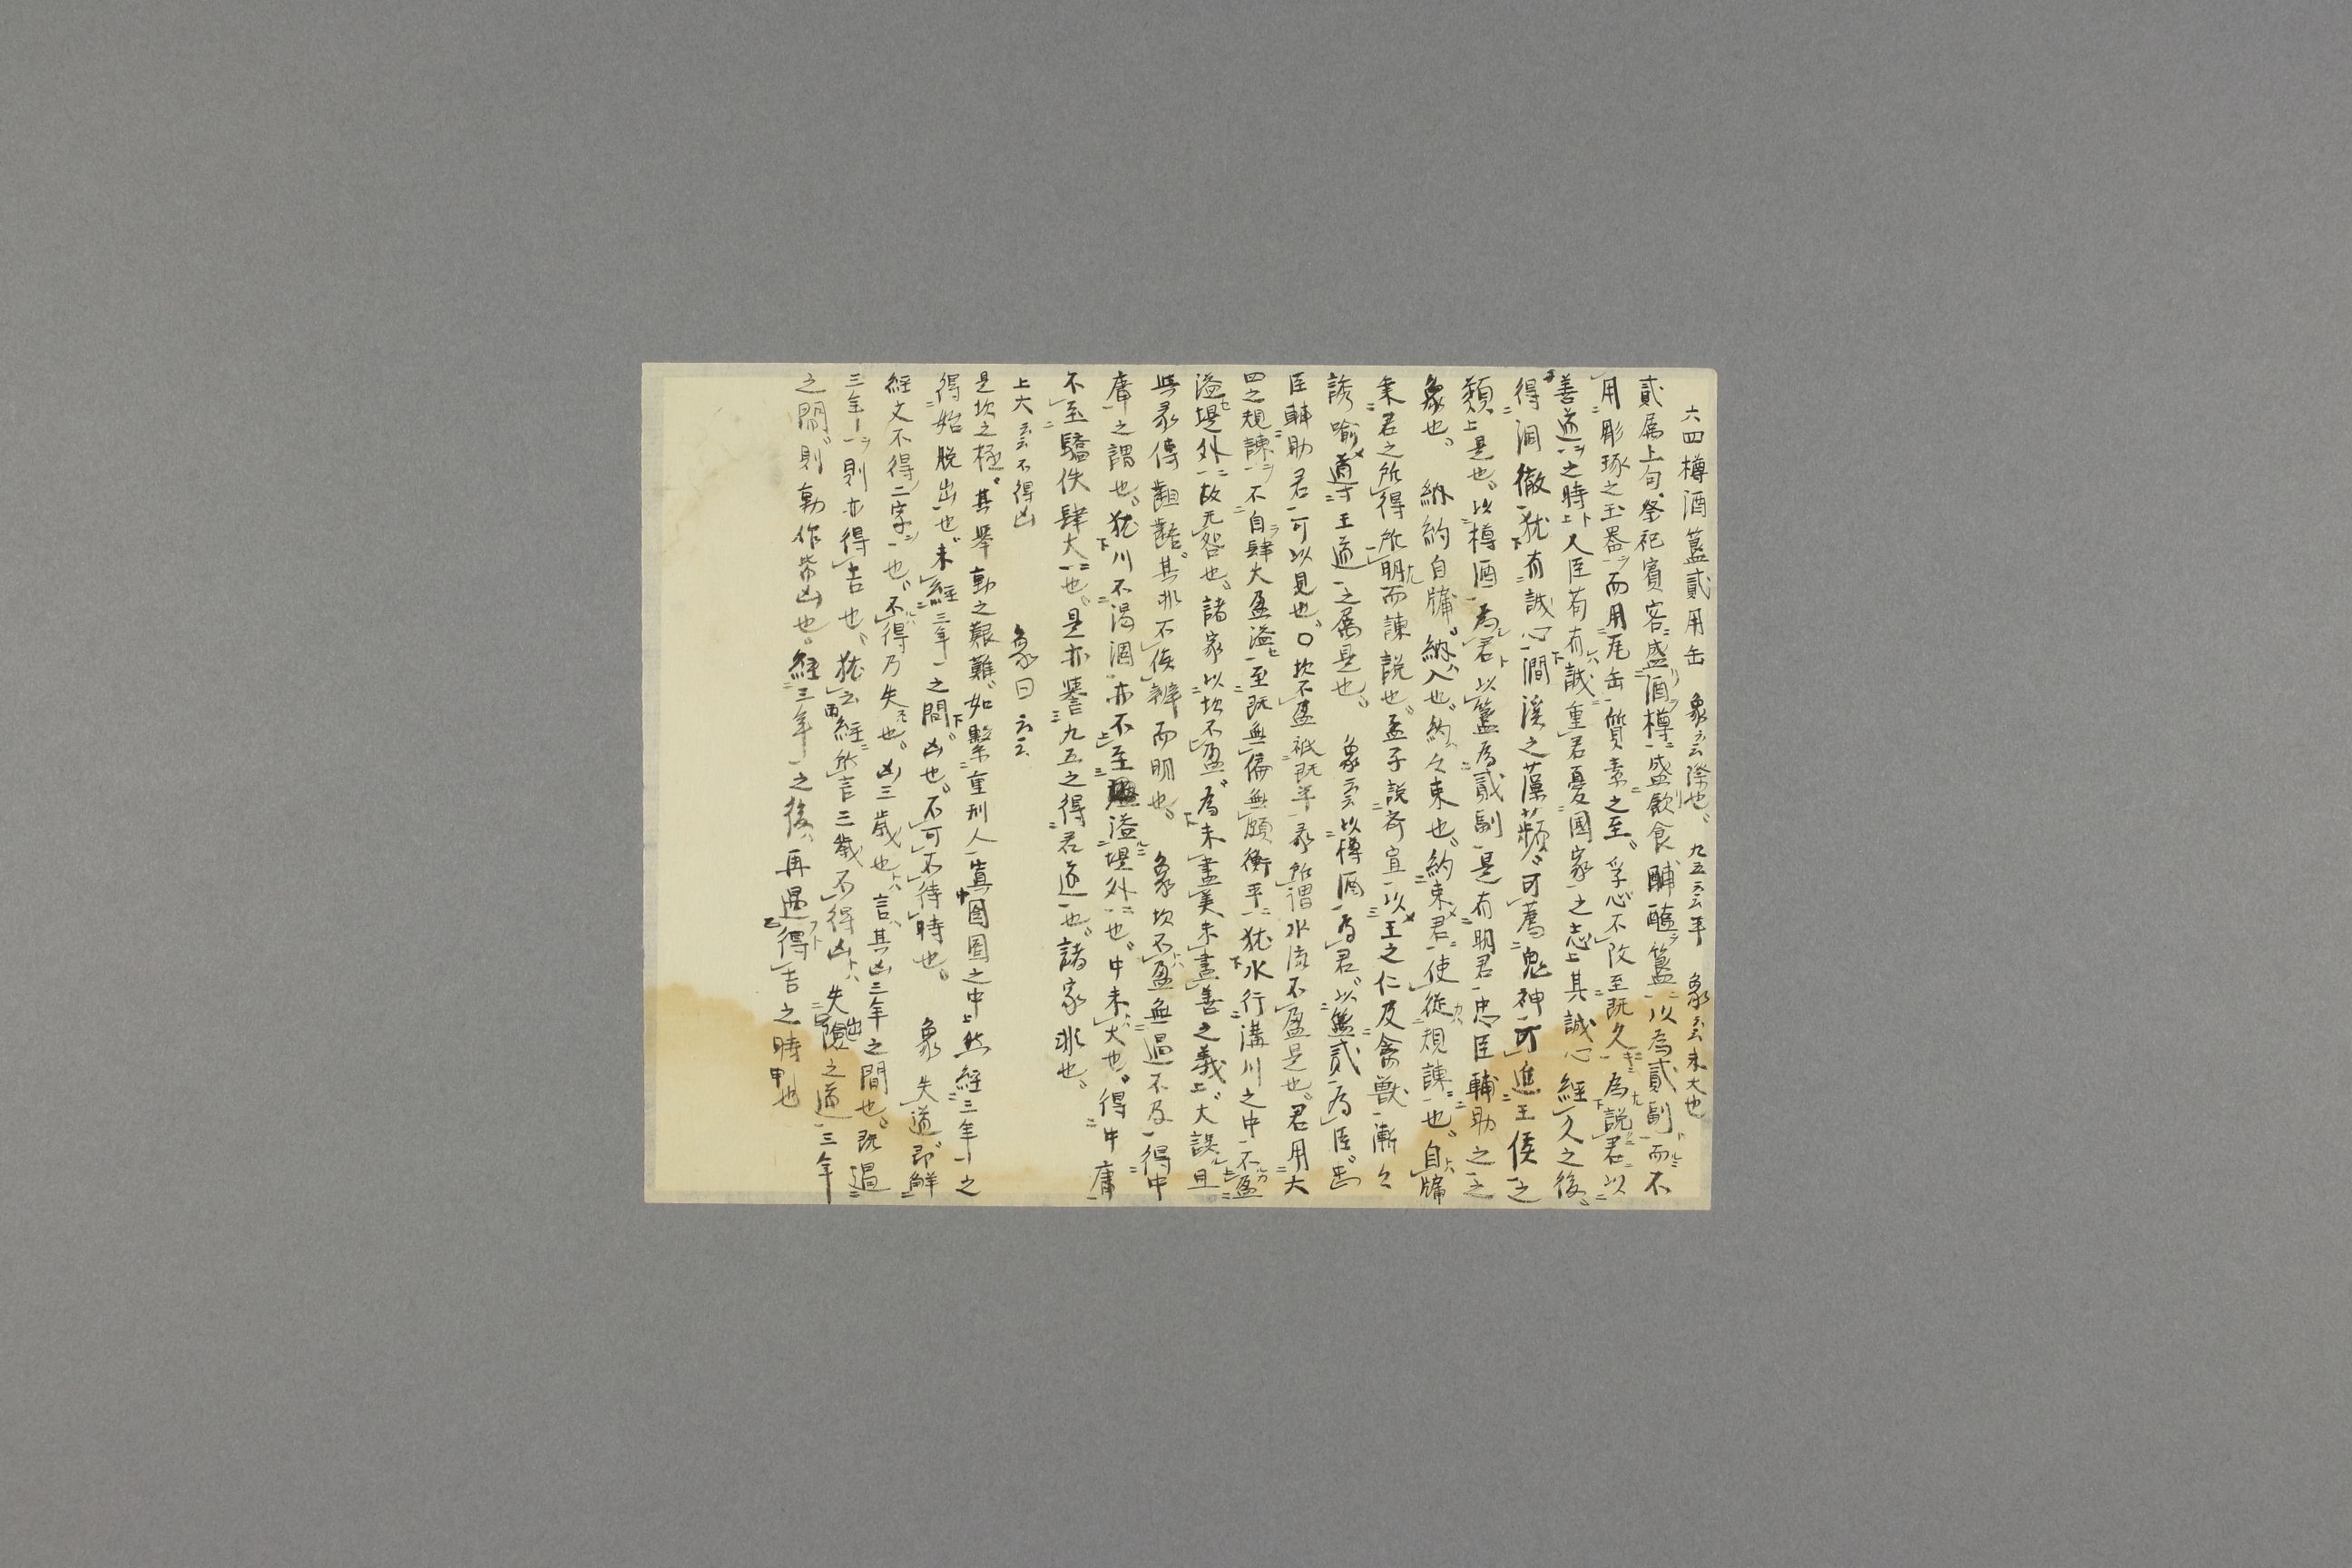 六四樽酒簋貳用缶　象云云際也。九五云云平　象云云未大也
貳属上句。祭祀賓客盛酒樽盛飲食酺醢簋以為貳副而不
用彫琢之玉器而用瓦缶質素之至。孚心不改至既久為説君以
善道之時人臣苟有誠重君憂國家之志其誠心經久之後。
得洞徹猶有誠心澗溪之薀蘋。可薦鬼神可進王侯之
類是也。以樽酒為君以簋為貳副是有明君忠臣輔助之之
象也。　納約自牖。納入也。約々束也。約束君使從規諫也。自牖
案君之所得所明而諫説也。孟子説斉宣以王之仁及禽獣漸々
誘喻導王道之属是也。　象云云以樽酒為君。以簋貳為臣。
臣輔助君可以見也。〇坎不盈祗既平彖所謂水流不盈是也。君用大
四之規諫不自肆大盈溢至既無偏無頗衡平猶水行溝川之中不盈
溢堤外故无咎也。諸家以坎不盈。為未盡美未盡善之義。大誤且
与彖傳齟齬。其非不俟辨而明也。　象坎不盈無過不及得中
庸之謂也。猶川不渇涸亦不至溢堤外也。中未大也。得中庸
不至驕佚肆大也。是亦誉九五之得君道也。諸家非也。
上六云云不得凶　　　象曰云云
是坎之極。其舉動之艱難。如繫重刑人寘囹圄之中然經三年之
得始脱出也。未經三年之間。凶也。不可不待時也。　象　失道。即解
經文不得二字也。不得乃失也。凶三歳也言其凶三年之間也。既過
三年則亦得吉也。猶云經所言三歳不得凶　失出險之道三年
之間。則動作皆凶也。經三年之後。再遇得吉之時也